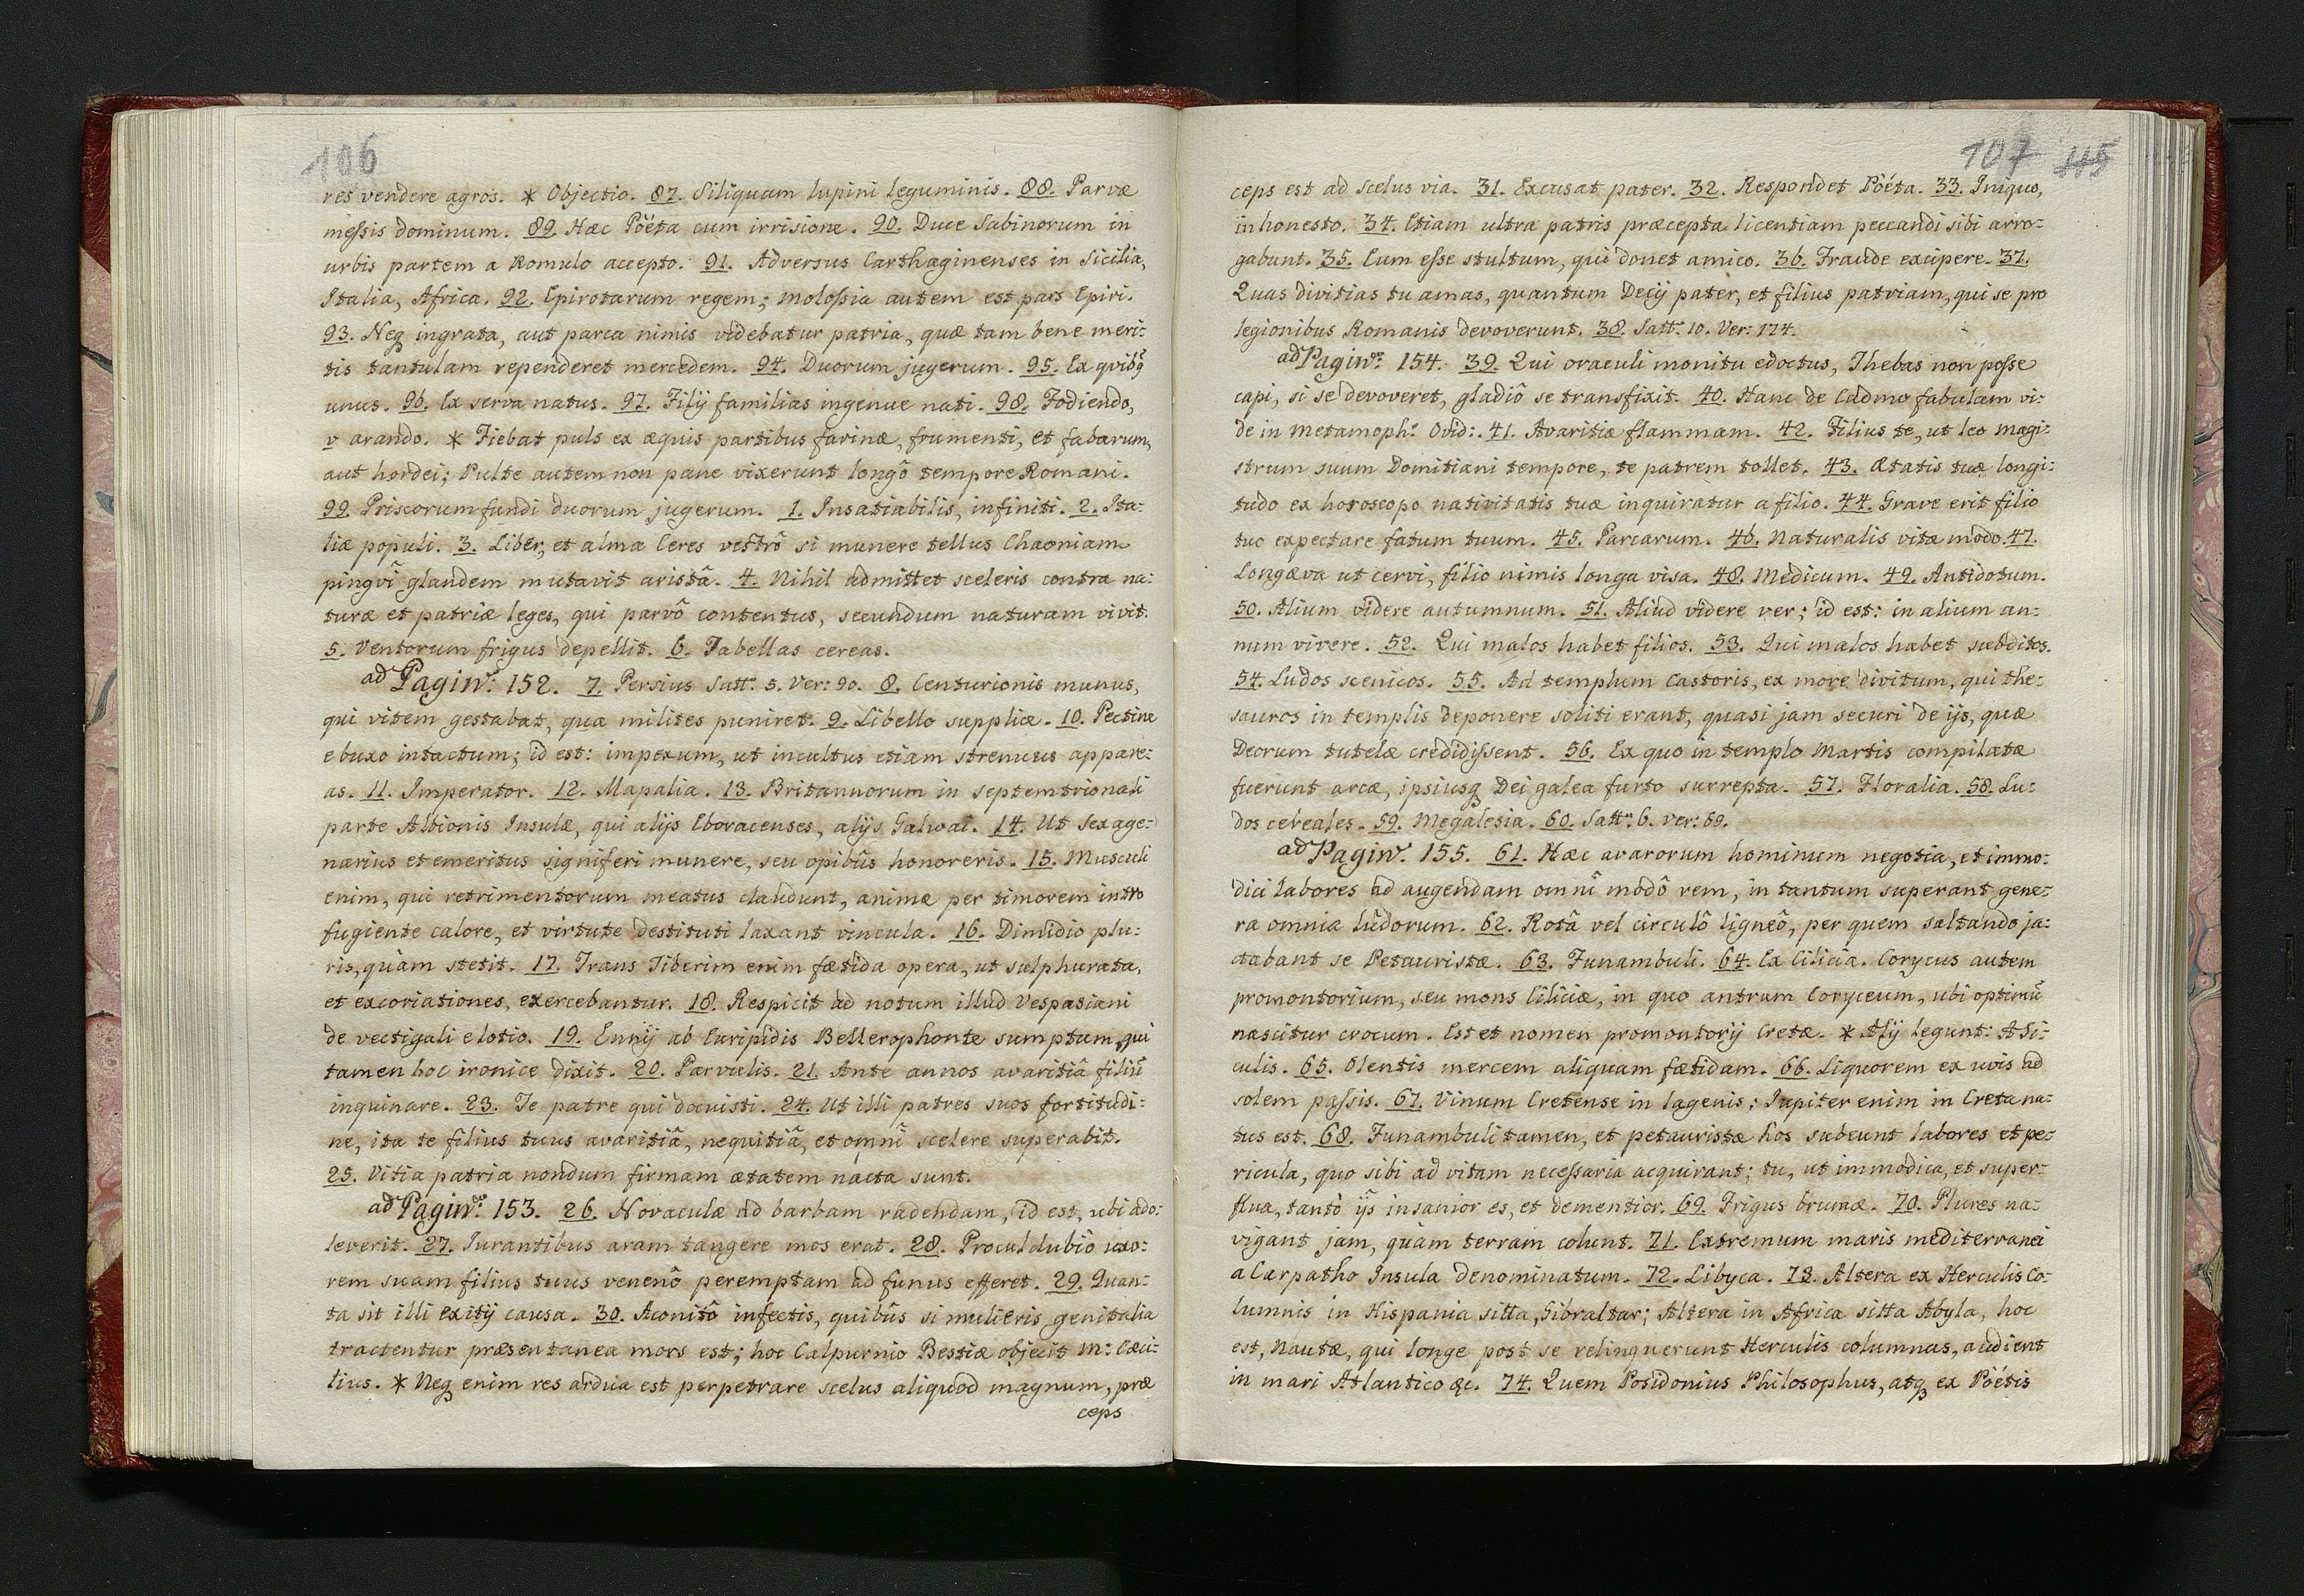 106
res vendere agros. * Objectio. 87. Siliquam lupini leguminis. 88. Parvæ
meſsis dominum. 89. Hæc Pöéta cum irrisione. 90. Duce Sabinorum in
urbis partem a Romulo accepto. 91. Adversus Carthaginenses in Sicilia,
Italia, Africa. 92. Epirotarum regem; moloſsia autem est pars Epiri.
93. Neq ingrata, aut parca nimis videbatur patria, quæ tam bene meri:
tis tantulam rependeret mercedem. 94. Duorum jugerum. 95. Ex qvibq
unus. 96. Ex serva natus. 97. Filij familias ingenue nati. 98. Fodiendo,
v arando. * Fiebat puls ex æquis partibus farinæ, frumenti, et fabarum,
aut hordei; Pulte autem non pane vixerunt longô tempore Romani.
99. Priscorum fundi duorum jugerum. 1. Insatiabilis, infiniti. 2. Ita:
liæ populi. 3. Liber, et alma Ceres vestrô si munere tellus Chaoniam
pingvî glandem mutavit aristâ. 4. Nihil admittet sceleris contra na:
turæ et patriæ leges, qui parvô contentus, secundum naturam vivit.
5. Ventorum frigus depellit. 6. Tabellas cereas.
ad Pagin: 152. 7. Persius Satt: 5. Ver: 90. 8. Centurionis munus,
qui vitem gestabat, qua milites puniret. 9. Libello supplicæ. 10. Pectine
e buxo intactum; id est: impexum, ut incultus etiam strenuus appare:
as. 11. Imperator. 12. Mapalia. 13. Britannorum in septemtrionali
parte Albionis Insulæ, qui alijs Eboracenses, alijs Galwai. 14. Ut sexage:
narius et emeritus signiferi munere, seu opibûs honoreris. 15. Musculi
enim, qui retrimentorum meatus claudunt, animæ per timorem intro
fugiente calore, et virtute destituti laxant vincula. 16. Dimidio plu:
ris, quàm stetit. 17. Trans Tiberim enim fætida opera, ut sulphurata,
et excoriationes, exercebantur. 18. Respicit ad notum illud Vespasiani
de vectigali e lotio. 19. Ennij ab Euripidis Bellerophonte sumptum, qui
tamen hoc ironice dixit. 20. Parvulis. 21. Ante annos avaritiâ filiū
inquinare. 23. Te patre qui docuisti. 24. Ut illi patres suos fortitudi:
ne, ita te filius tuus avaritiâ, nequitiâ, et omnî scelere superabit.
25. Vitia patria nondum firmam ætatem nacta sunt.
ad Pagin: 153. 26. Novaculæ ad barbam radendam, id est, ubi ado:
leverit. 27. Jurantibus aram tangere mos erat. 28. Procul dubio uxo:
rem suam filius tuus venenô peremptam ad funus efferet. 29. Quan:
ta sit illi exitij causa. 30. Aconitô infectis, quibûs si mulieris genitalia
tractentur præsentanea mors est; hoc Calpurnio Bestiæ objecit M: Cæci:
lius. * Neq enim res ardua est perpetrare scelus aliquod magnum, præ
ceps
107 115
ceps est ad scelus via. 31. Excusat pater. 32. Respondet Pöéta. 33. Iniquo,
inhonesto. 34. Etiam ultra patris præcepta licentiam peccandi sibi arro:
gabunt. 35. Eum eſse stultum, qui donet amico. 36. Fraude excipere. 37.
Quas divitias tu amas, quantum Decij pater, et filius patriam, qui se pro
legionibus Romanis devoverunt. 38. Satt: 10. Ver: 174.
ad Pagin: 154. 39. Qui oraculi monitu edoctus, Thebas non poſse
capi, si se devoveret, gladiô se transfixit. 40. Hanc de Cadmo fabulam vi:
de in Metamoph: Ovid:. 41. Avaritiæ flammam. 42. Filius te, ut leo magi:
strum suum Domitiani tempore, te patrem tollet. 43. Ætatis tuæ longi:
tudo ex horoscopo nativitatis tuæ inquiratur a filio. 44. Grave erit filio
tuo expectare fatum tuum. 45. Parcarum. 46. Naturalis vitæ modo. 47.
Longæva ut cervi, filio nimis longa visa. 48. Medicum. 49. Antidotum.
50. Alium videre autumnum. 51. Aliud videre ver; id est: in alium an:
num vivere. 52. Qui malos habet filios. 53. Qui malos habet subditos.
54. Ludos scenicos. 55. Ad templum Castoris, ex more divitum, qui the:
sauros in templis deponere soliti erant, quasi jam securi de ijs, quæ
Deorum tutelæ credidiſsent. 56. Ex quo in templo Martis compilatæ
fuerunt arcæ, ipsiusq Dei galea furto surrepta. 57. Floralia. 58. Lu:
dos cereales. 59. Megalesia. 60. Satt: 6. Ver: 69.
ad Pagin: 155. 61. Hæc avarorum hominum negotia, et immo:
dici labores ad augendam omnî modô rem, in tantum superant gene:
ra omnia ludorum. 62. Rotâ vel circulô ligneô, per quem saltando ja:
ctabant se Petauristæ. 63. Funambuli. 64. Ex Cilicia. Corycus autem
promontorium, seu mons Ciliciæ, in quo antrum Coryceum, ubi optimū
nascitur crocum. Est et nomen promontorij Cretæ. * Alij legunt: A Si:
culis. 65. Olentis mercem aliquam fætidam. 66. Liquorem ex uvis ad
solem paſsis. 67. Vinum Cretense in lagenis; Jupiter enim in Creta na:
tus est. 68. Funambuli tamen, et petauristæ hos subeunt labores et pe:
ricula, quo sibi ad vitam neceſsaria acquirant; tu, ut immodica, et super:
flua, tantò ijs insanior es, et dementior. 69. Frigus brumæ. 70. Plures na:
vigant jam, quàm terram colunt. 71. Extremum maris mediterranei
a Carpatho Insula denominatum. 72. Libyca. 73. Altera ex Herculis Co:
lumnis in Hispania sitta, Gibraltar; Altera in Africa sitta Abyla, hoc
est, Nautæ, qui longe post se relinquerunt Herculis columnas, audient
in mari Atlantico &c. 74. Quem Posidonius Philosophus, atq ex Pöétis